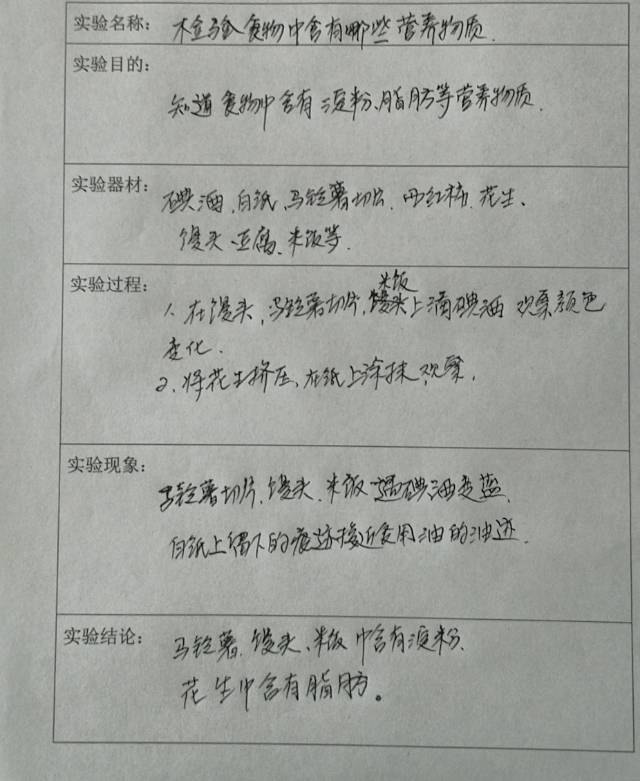 实验名称：检验食物中含有哪些营养物质.
实验目的：
知道食物中含有淀粉、脂肪等营养物质.
实验器材：碘酒、白纸、马铃薯切片、西红柿、花生、
馒头、豆腐、米饭等.
实验过程：
米饭
1、在馒头,马铃薯切片,上滴碘酒 观察颜色
变化.
2、将花生挤压、在纸上涂抹、观察.
实验现象：
马铃薯切片、馒头、米饭遇碘酒变蓝.
白纸上留下的痕迹接近食用油的油迹.
实验结论：马铃薯、馒头、米饭中含有淀粉.
花生中含有脂肪。